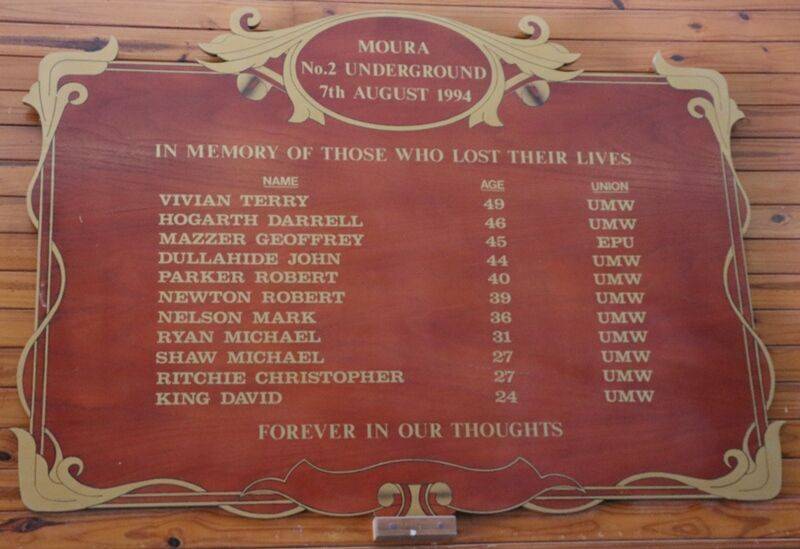 MOURA
No.2 UNDERGROUND
7th AUGUST 1994
IN MEMORY OF THOSE WHO LOST THEIR LIVES
NAME AGE UNION
VIVIAN TERRY 49 UMW
HOGARTH DARRELL 46 UMW
MAZZER GEOFFREY 45 EPU
DULLAHIDE JOHN 44 UMW
PARKER ROBERT 40 UMW
NEWTON ROBERT 39 UMW
NELSON MARK 36 UMW
RYAN MICHAEL 31 UMW
SHAW MICHAEL 27 UMW
RITCHIE CHRISTOPHER 27 UMW
KING DAVID 24 UMW
FOREVER IN OUR THOUGHTS